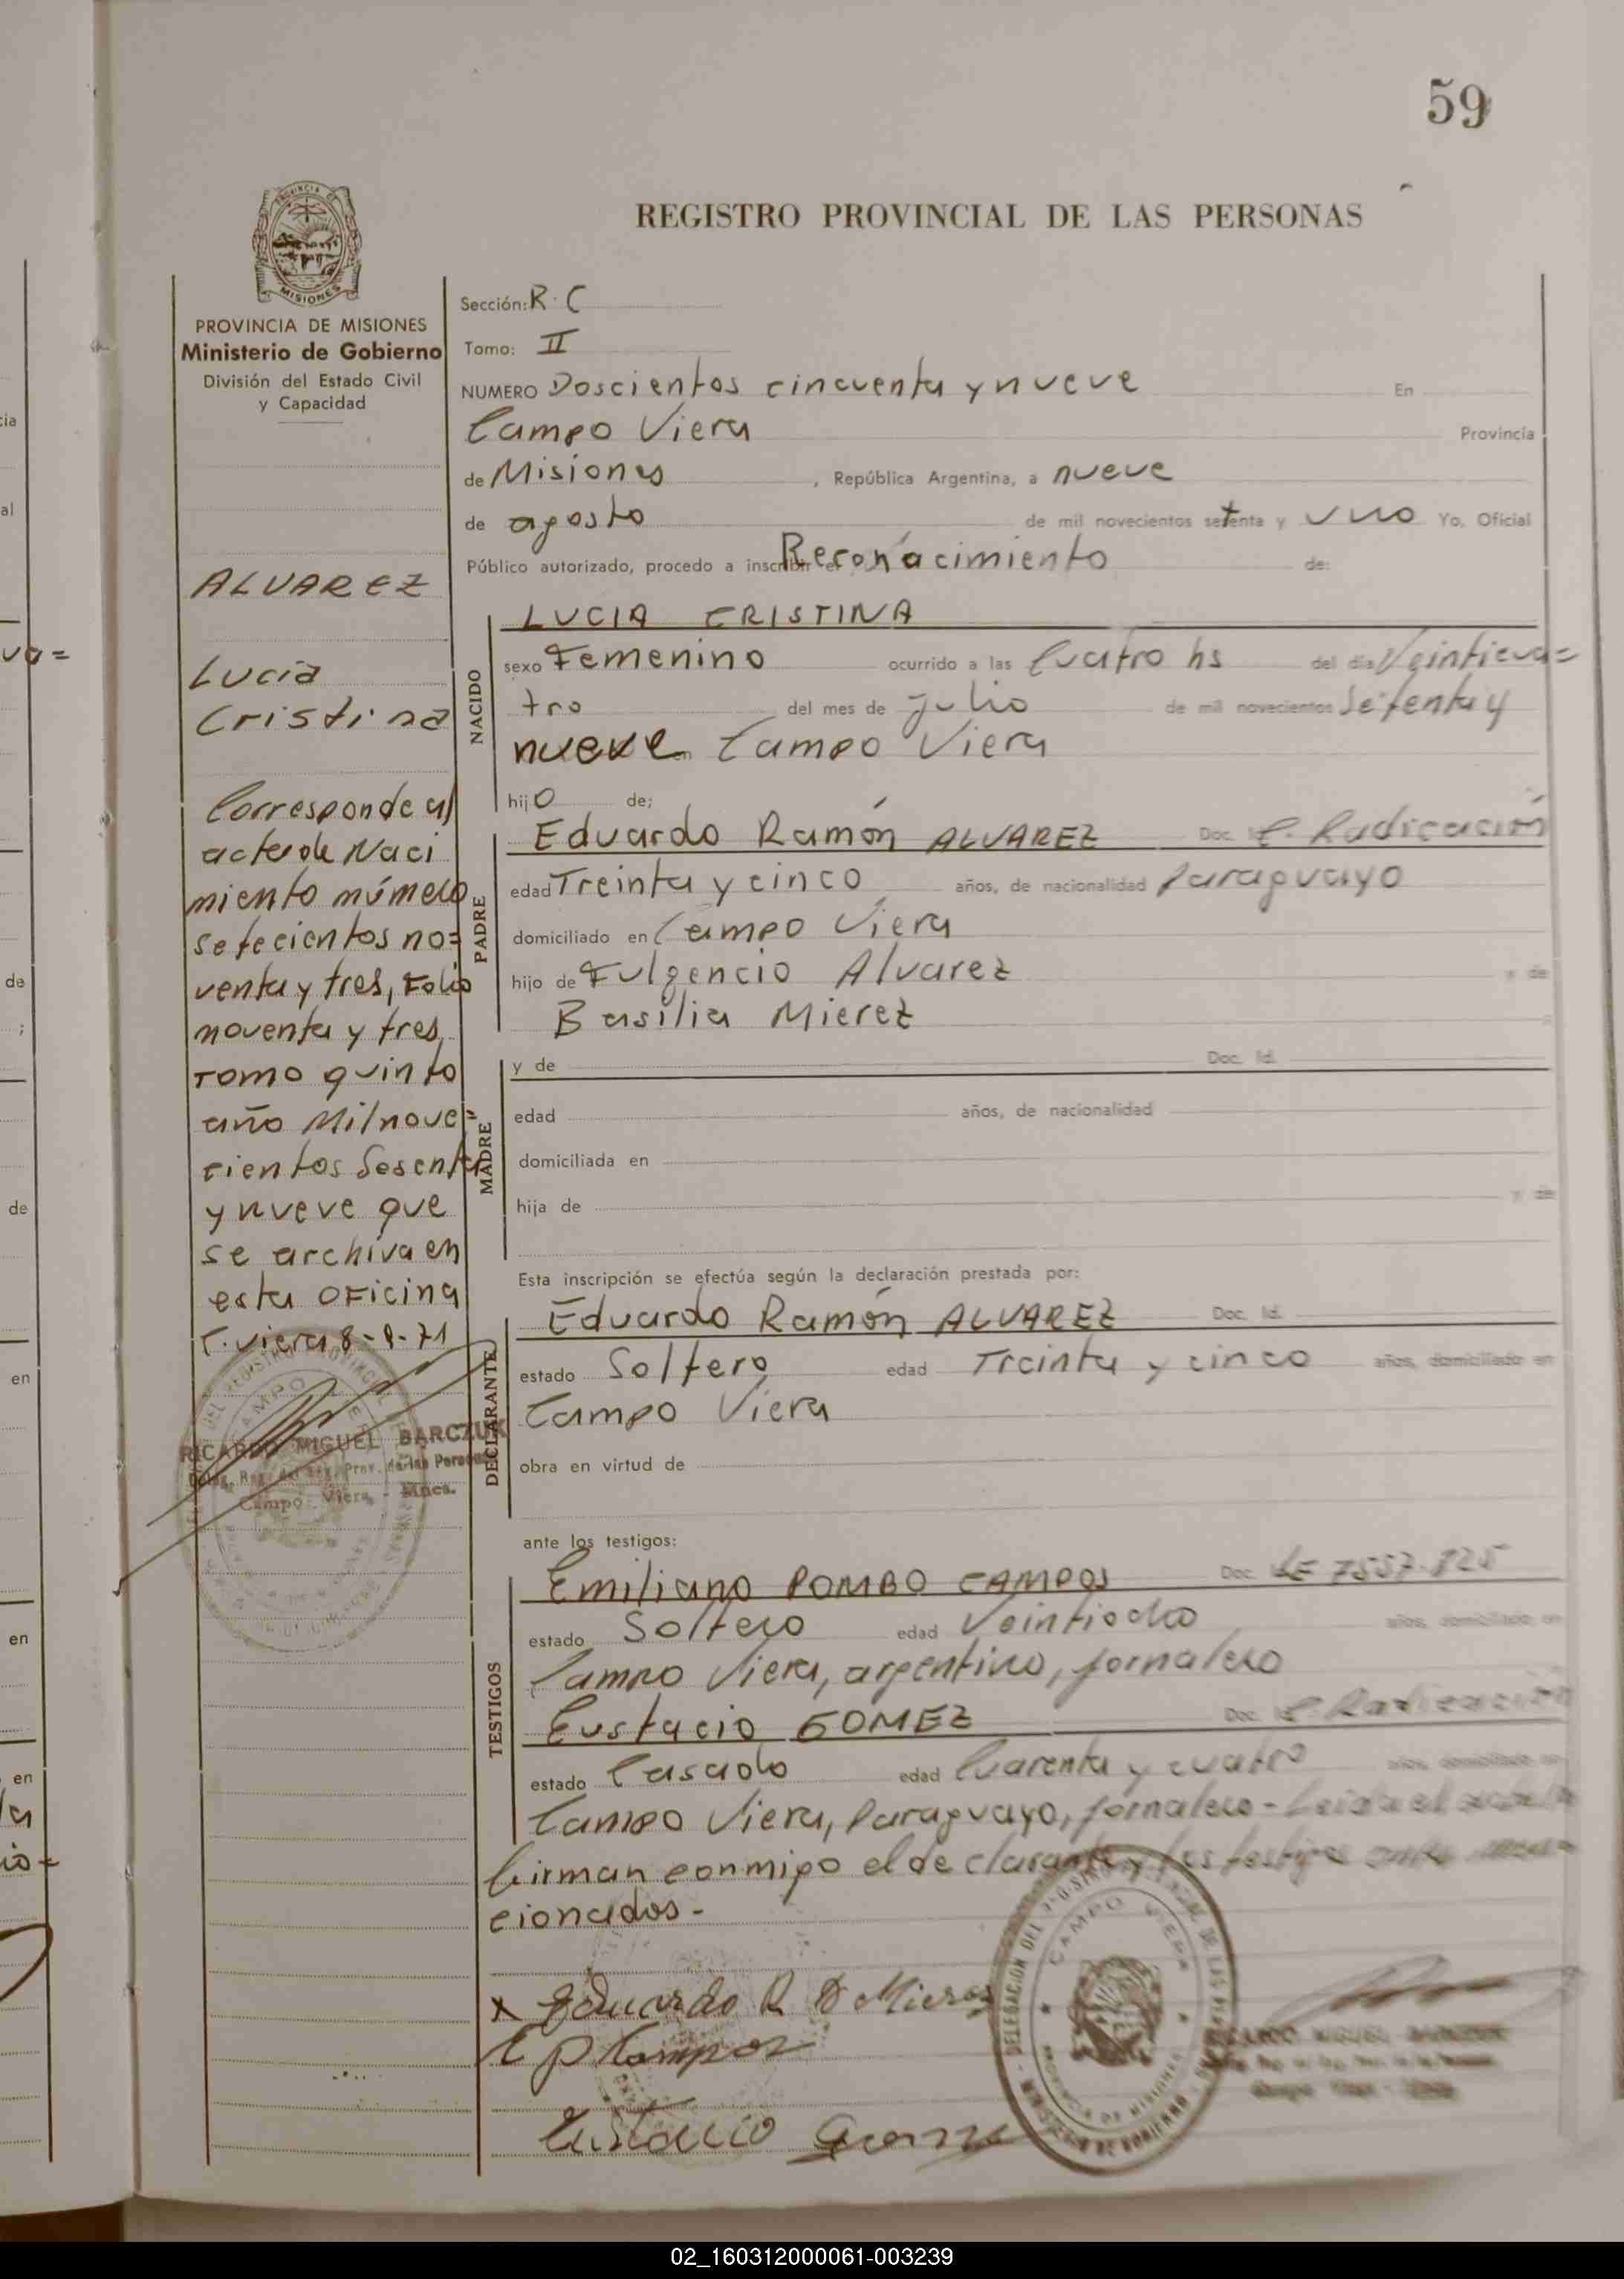 59
REGISTRO PROVINCIAL DE LAS PERSONAS
PROVINCIA DE MISIONES
Ministerio de Gobierno
División del Estado Civil
y Capacidad
ALVAREZ
Lucia
Cristina
Corresponde al
acta de Naci
miento número
setecientos no=
venta y tres, Folio
noventa y tres,
Tomo quinto
año Milnove=
cientos Sesenta
y nueve que
se archiva en
esta OFicina
C. Viera 8-9-71
RICARDO MIGUEL BARCZUK
Campo Viera - Mnes.
Sección: R.C
Tomo: II
NUMERO Doscientos cincuenta y nueve En
Campo Viera Provincia
de Misiones, República Argentina, a nueve
de agosto de mil novecientos setenta y uno Yo, Oficial
Público autorizado, procedo a inscribir el Reconacimiento de:
NACIDO
LUCIA CRISTINA
sexo Femenino ocurrido a las Cuatro hs del dia Veinticua=
tro del mes de julio de mil novecientos Setenta y
nueve en Campo Viera
hijo de;
PADRE
Eduardo Ramón ALVAREZ Doc. Id. C. Radicación
edad Treinta y cinco años, de nacionalidad Paraguayo
domiciliado en Campo Viera
hijo de Fulgencio Alvarez y de
Basilia Mierez
MADRE
y de Doc. Id.
edad años, de nacionalidad
domiciliada en
hija de y de
Esta inscripción se efectúa según la declaración prestada por:
DECLARANTE
Eduardo Ramón ALVAREZ Doc. Id.
estado Soltero edad Treinta y cinco años, domiciliado en
Campo Viera
obra en virtud de
ante los testigos:
TESTIGOS
Emiliano POMBO CAMPOS Doc. LE 7557.825
estado Soltero edad Veintiocho años, domiciliado en
Campo Viera, argentino, jornalero
Eustacio GOMEZ Doc. Id. C. Radicación
estado Casado edad Cuarenta y cuatro años, domiciliado en
Campo Viera, Paraguayo, jornalero - Leida el acta la
firman conmigo el declarante y los testigos ante men=
cionados -
x Eduardo R A Mieres
E P Campos
Eustacio Gomez
RICARDO MIGUEL BARCZUK
02_160312000061-003239